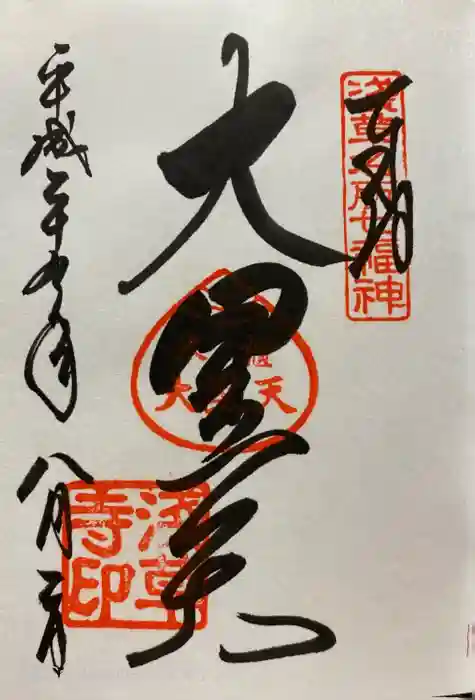 奉拝
浅草名所七福神
大黒天
大黒天
浅草寺印
平成二十九年
八月二日